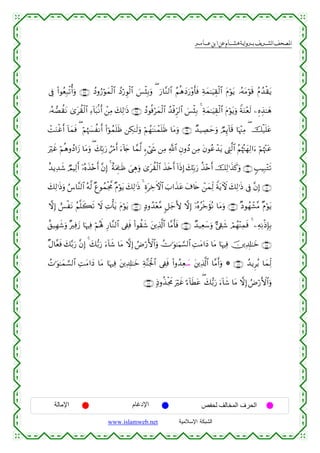 المصحف الشريف برواية هشام عن ابن عامر
يَقْدُمُ قَوْمَهُۥ يَوْمَ ٱلْقِيَٰمَةِ فَأَوْرَدَهُمُ ٱلنَّارَ ۖ وَبِئْسَ ٱلْوِرْدُ ٱلْمَوْرُودُ وَأُتْبِعُوا۟ فِى
هَٰذِهِۦ لَعْنَةً وَيَوْمَ ٱلْقِيَٰمَةِ ۚ بِئْسَ ٱلرِّفْدُ ٱلْمَرْفُودُ ذَٰلِكَ مِنْ أَنۢبَآءِ ٱلْقُرَىٰ نَقُصُّهُۥ
عَلَيْكَ ۖ مِنْهَا قَآئِمٌ وَحَصِيدٌ وَمَا ظَلَمْنَٰهُمْ وَلَٰكِن ظَلَمُوٓا۟ أَنفُسَهُمْ ۖ فَمَآ أَغْنَتْ
عَنْهُمْ ءَالِهَتُهُمُ ٱلَّتِى يَدْعُونَ مِن دُونِ ٱللَّهِ مِن شَىْءٍ لَّمَّا جَآءَ أَمْرُ رَبِّكَ ۖ وَمَا زَادُوهُمْ غَيْرَ
تَتْبِيبٍ وَكَذَٰلِكَ أَخْذُ رَبِّكَ إِذَآ أَخَذَ ٱلْقُرَىٰ وَهِىَ ظَٰلِمَةٌ ۚ إِنَّ أَخْذَهُۥٓ أَلِيمٌ شَدِيدٌ
إِنَّ فِى ذَٰلِكَ لَءَايَةً لِّمَنْ خَافَ عَذَابَ ٱلْءَاخِرَةِ ۚ ذَٰلِكَ يَوْمٌ مَّجْمُوعٌ لَّهُ ٱلنَّاسُ وَذَٰلِكَ
يَوْمٌ مَّشْهُودٌ وَمَا نُؤَخِّرُهُۥٓ إِلَّا لِأَجَلٍ مَّعْدُودٍ يَوْمَ يَأْتِ لَا تَكَلَّمُ نَفْسٌ إِلَّا
بِإِذْنِهِۦ ۚ فَمِنْهُمْ شَقِىٌّ وَسَعِيدٌ فَأَمَّا ٱلَّذِينَ شَقُوا۟ فَفِى ٱلنَّارِ لَهُمْ فِيهَا زَفِيرٌ وَشَهِيقٌ
خَٰلِدِينَ فِيهَا مَا دَامَتِ ٱلسَّمَٰوَٰتُ وَٱلْأَرْضُ إِلَّا مَا شَآءَ رَبُّكَ ۚ إِنَّ رَبَّكَ فَعَّالٌ
لِّمَا يُرِيدُ ۞ وَأَمَّا ٱلَّذِينَ سَعِدُوا۟ فَفِى ٱلْجَنَّةِ خَٰلِدِينَ فِيهَا مَا دَامَتِ ٱلسَّمَٰوَٰتُ
وَٱلْأَرْضُ إِلَّا مَا شَآءَ رَبُّكَ ۖ عَطَآءً غَيْرَ مَجْذُوذٍ
الحرف المخالف لحفص الإدغام الإمالة
الشبكة الإسلامية www.islamweb.net